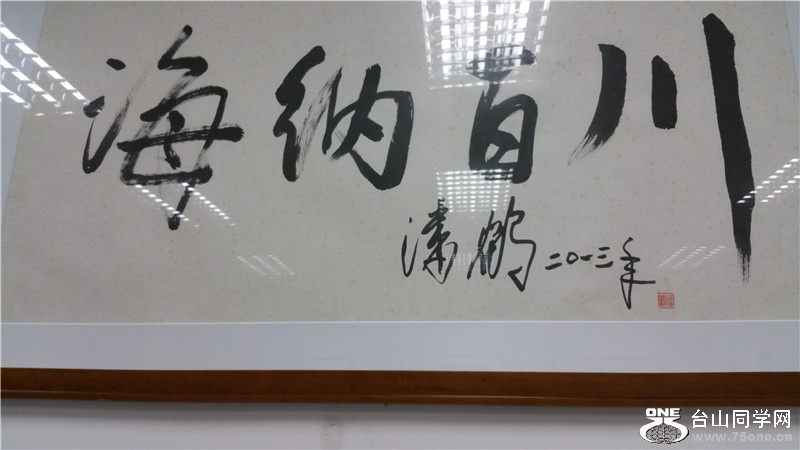 海纳百川
潆鹤 二〇一三年
ONE 台山同学网
www.75one.cn